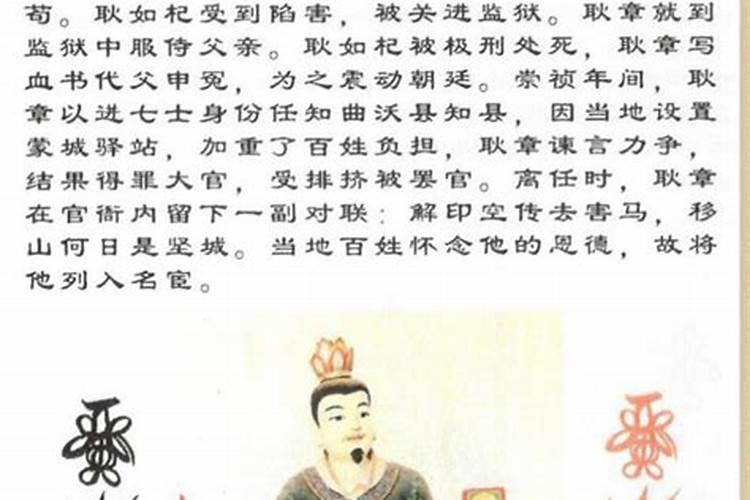 苟。耿如杞受到陷害，被关进监狱。耿章就到
监狱中服侍父亲。耿如杞被极刑处死，耿章写
血书代父申冤，为之震动朝廷。崇祯年间，耿
章以进七士身份任知曲沃县知县，因当地设置
蒙城驿站，加重了百姓负担，耿章谏言力争，
结果得罪大官，受排挤被罢官。离任时，耿章
在官衙内留下一副对联：解印空传去害马，移
山何日是坚城。当地百姓怀念他的恩德，故将
他列入名宦。